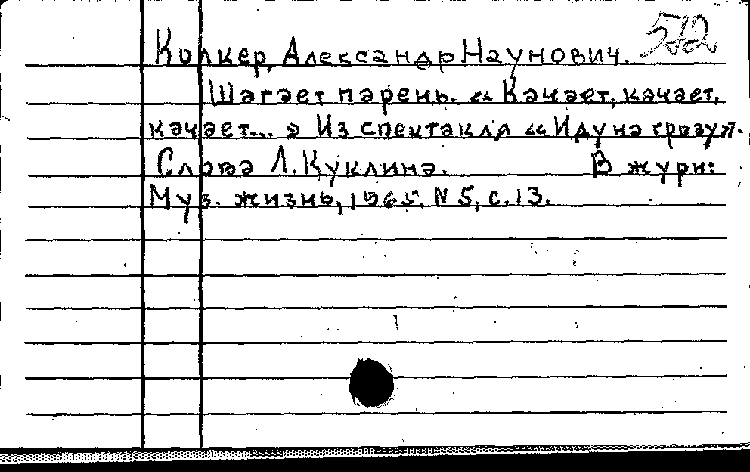 512
Колкер, Александр Наумович.
Шагает парень. « Качает, качает,
качает... » Из спектакля « Иду на грозу».
Слова Л. Куклина. В журн:
Муз. жизнь, 1965, N 5, с. 13.